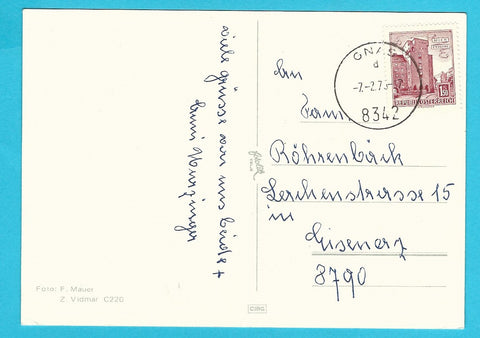 viele grüsse von uns beide +
Anni
Foto: F. Mauer
Z. Vidmar C220
GNAS
d
-7.-2.75
8342
REPUBLIK ÖSTERREICH
An
Fam.
Röhrenbäck
Lerchenstrasse 15
in
Eisenerz
8790